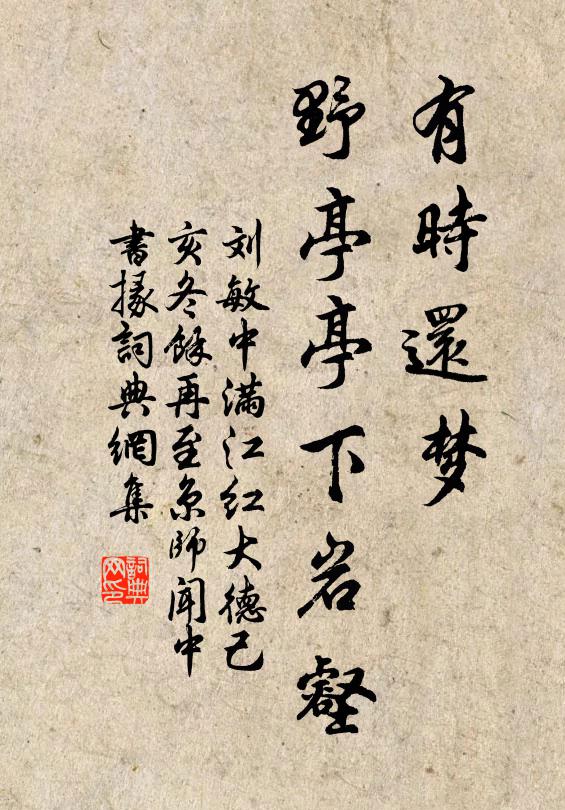 有時還梦
野亭亭下岩壑
刘敏中满江红大德己
亥冬餘再至京师闻中
書掾詞典網集
詞典網印